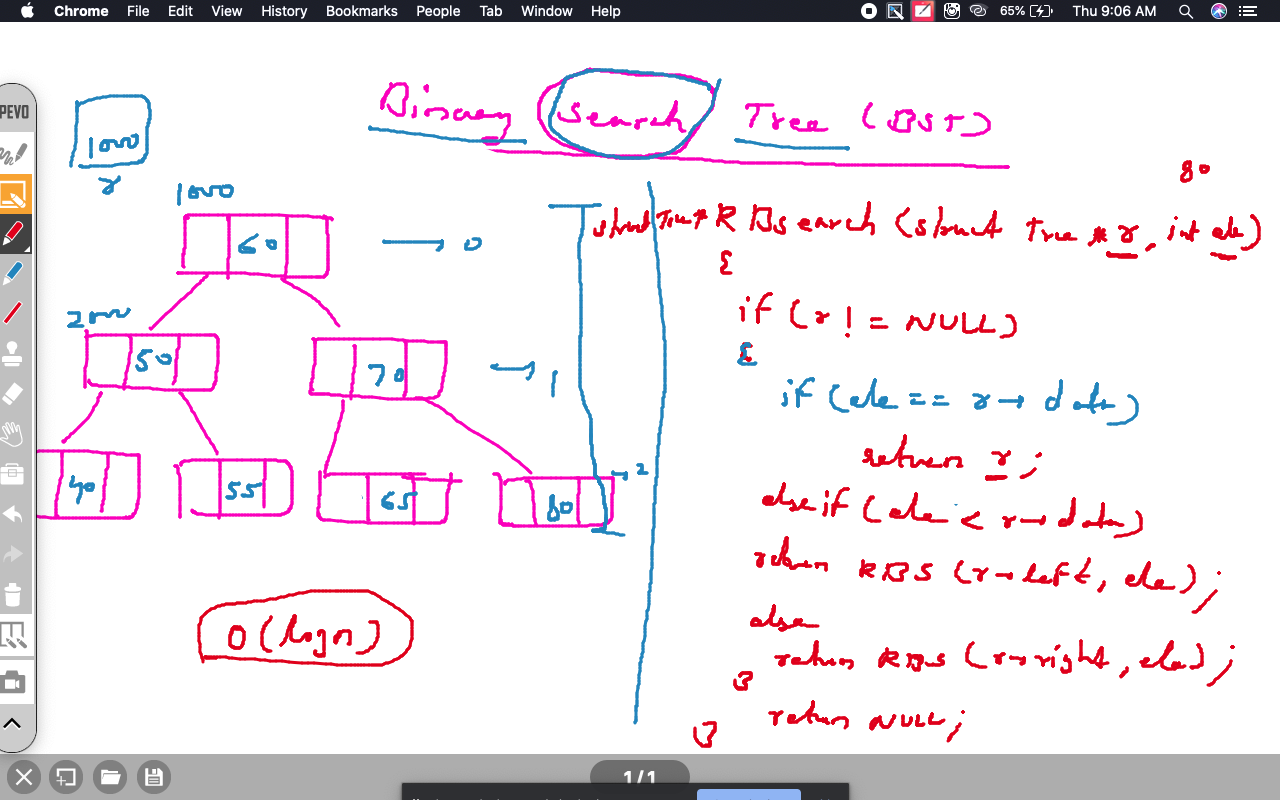 Chrome File Edit View History Bookmarks People Tab Window Help 65% Thu 9:06 AM
PEVO
Binary Search Tree (BST)
1000
r
1000
60 → 0
2000
50 70 → 1
40 55 65 80 → 2
O(logn)
80
struct Tree* RBSearch (struct Tree * r, int ele)
{
if (r != NULL)
{
if (ele == r→data)
return r;
else if (ele < r→data)
return RBS (r→left, ele);
else
return RBS (r→right, ele);
}
return NULL;
}
1/1